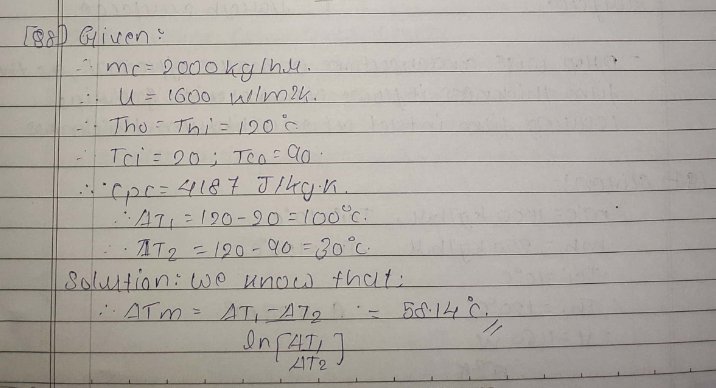 [98] Given:
∴ mc = 2000 kg/hr.
∴ U = 1600 w/m2k.
∴ Tho = Thi = 120°c
∴ Tci = 20 ; Tco = 90.
∴ cpc = 4187 J/kg.k.
∴ ΔT1 = 120 - 20 = 100°c.
∴ ΔT2 = 120 - 90 = 30°c.
Solution: we know that:
∴ ΔTm = ΔT1 - ΔT2 = 58.14°c.
ln[ΔT1
ΔT2]